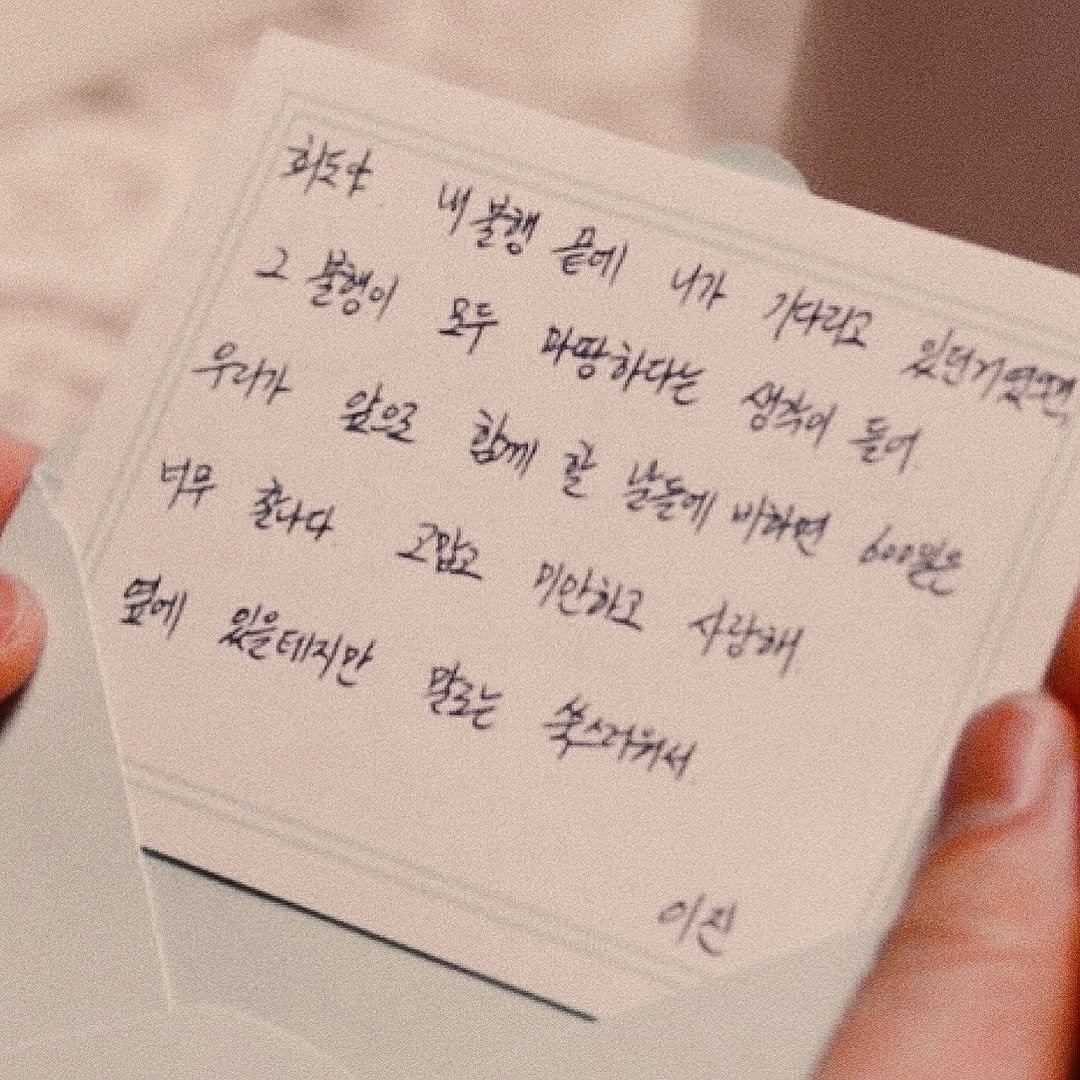 희도야 내 불행 끝에 니가 기다리고 있던거였으면,
그 불행이 모두 마땅하다는 생각이 들어.
우리가 앞으로 함께 할 날들에 비하면 600일은
너무 찰나다. 고맙고 미안하고 사랑해.
옆에 있을테지만 말로는 쑥스러워서.
이진